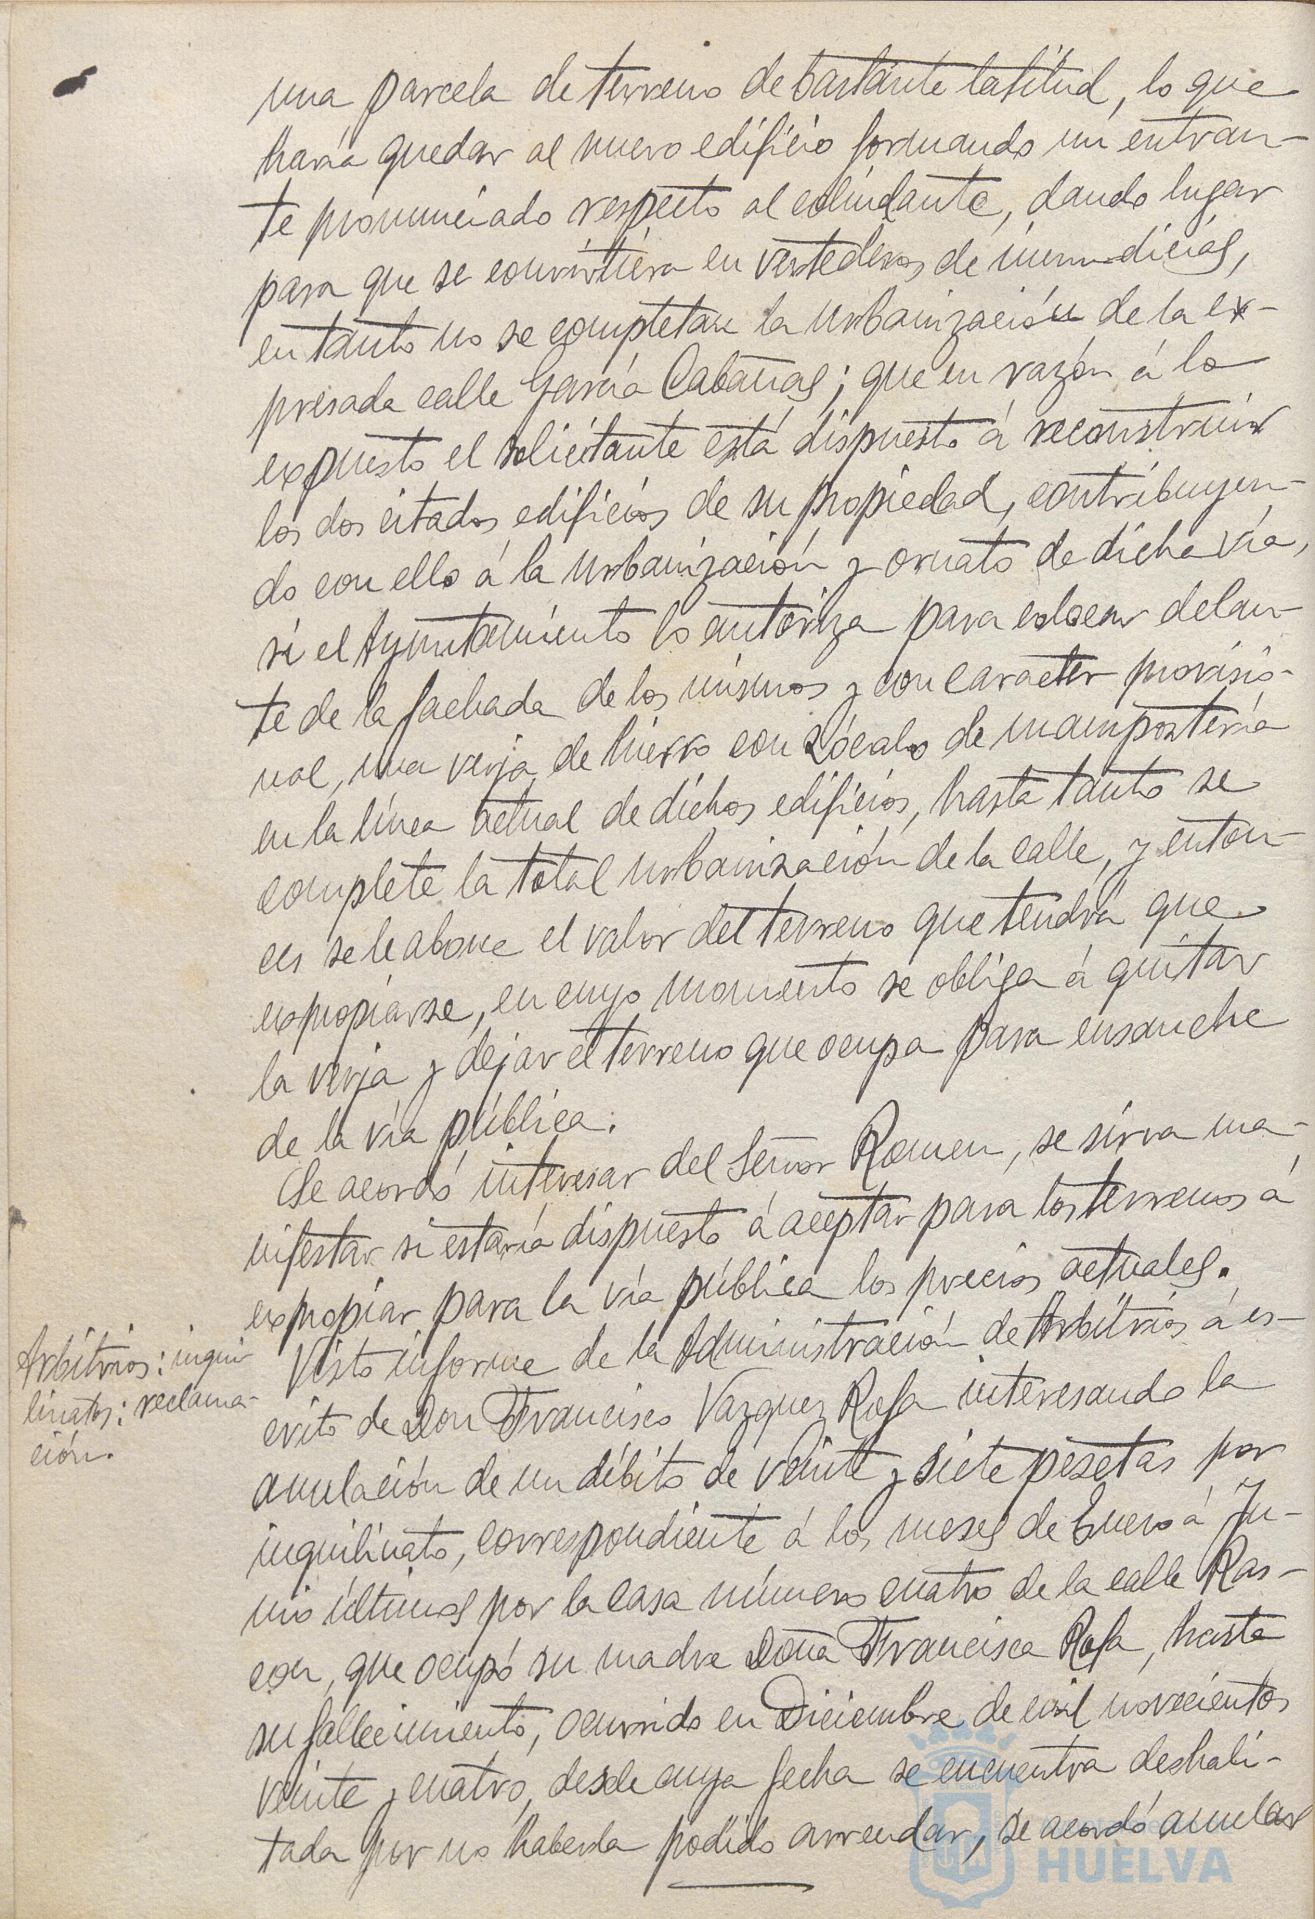 una parcela de terreno de bastante latitud, lo que
haría quedar al nuevo edificio formando un entran-
te pronunciado respecto al colindante, dando lugar
para que se convirtiera en vertederos de inmundicias,
en tanto no se completase la urbanización de la ex-
presada calle García Cabañas; que en razón á lo
expuesto el solicitante está dispuesto á reconstruir
los dos citados edificios de su propiedad, contribuyen-
do con ello á la urbanización y ornato de dicha vía,
si el Ayuntamiento lo autoriza para colocar delan-
te de la fachada de los mismos y con caracter provisio-
nal, una verja de hierro con zócalo de mampostería
en la línea actual de dichos edificios, hasta tanto se
complete la total urbanización de la calle, y enton-
ces se le abone el valor del terreno que tendrá que
expropiarse, en cuyo momento se obliga á quitar
la verja y dejar el terreno que ocupa para ensanche
de la vía pública.
Se acordó interesar del Señor Romen, se sirva ma-
nifestar si estaría dispuesto á aceptar para los terrenos á
expropiar para la vía pública los precios actuales.
Arbitrios: inqui-
linatos: reclama-
ción.
Visto informe de la Administración de Arbitrios á es-
crito de Don Francisco Vazquez Rofa interesando la
anulación de un débito de veinte y siete pesetas por
inquilinato, correspondiente á los meses de Enero á Ju-
nio últimos por la casa número cuatro de la calle Ras-
con, que ocupó su madre Doña Francisca Rofa, hasta
su fallecimiento, ocurrido en Diciembre de mil novecientos
veinte y cuatro, desde cuya fecha se encuentra deshabi-
tada por no haberla podido arrendar, se acordó anular
HUELVA